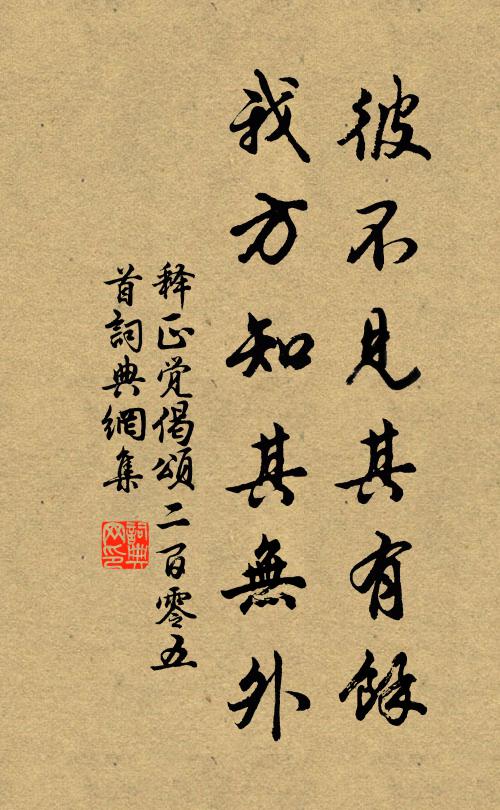 彼不見其有餘
我方知其無外
释正觉偈頌二百零五
首詞典網集
詞典网印